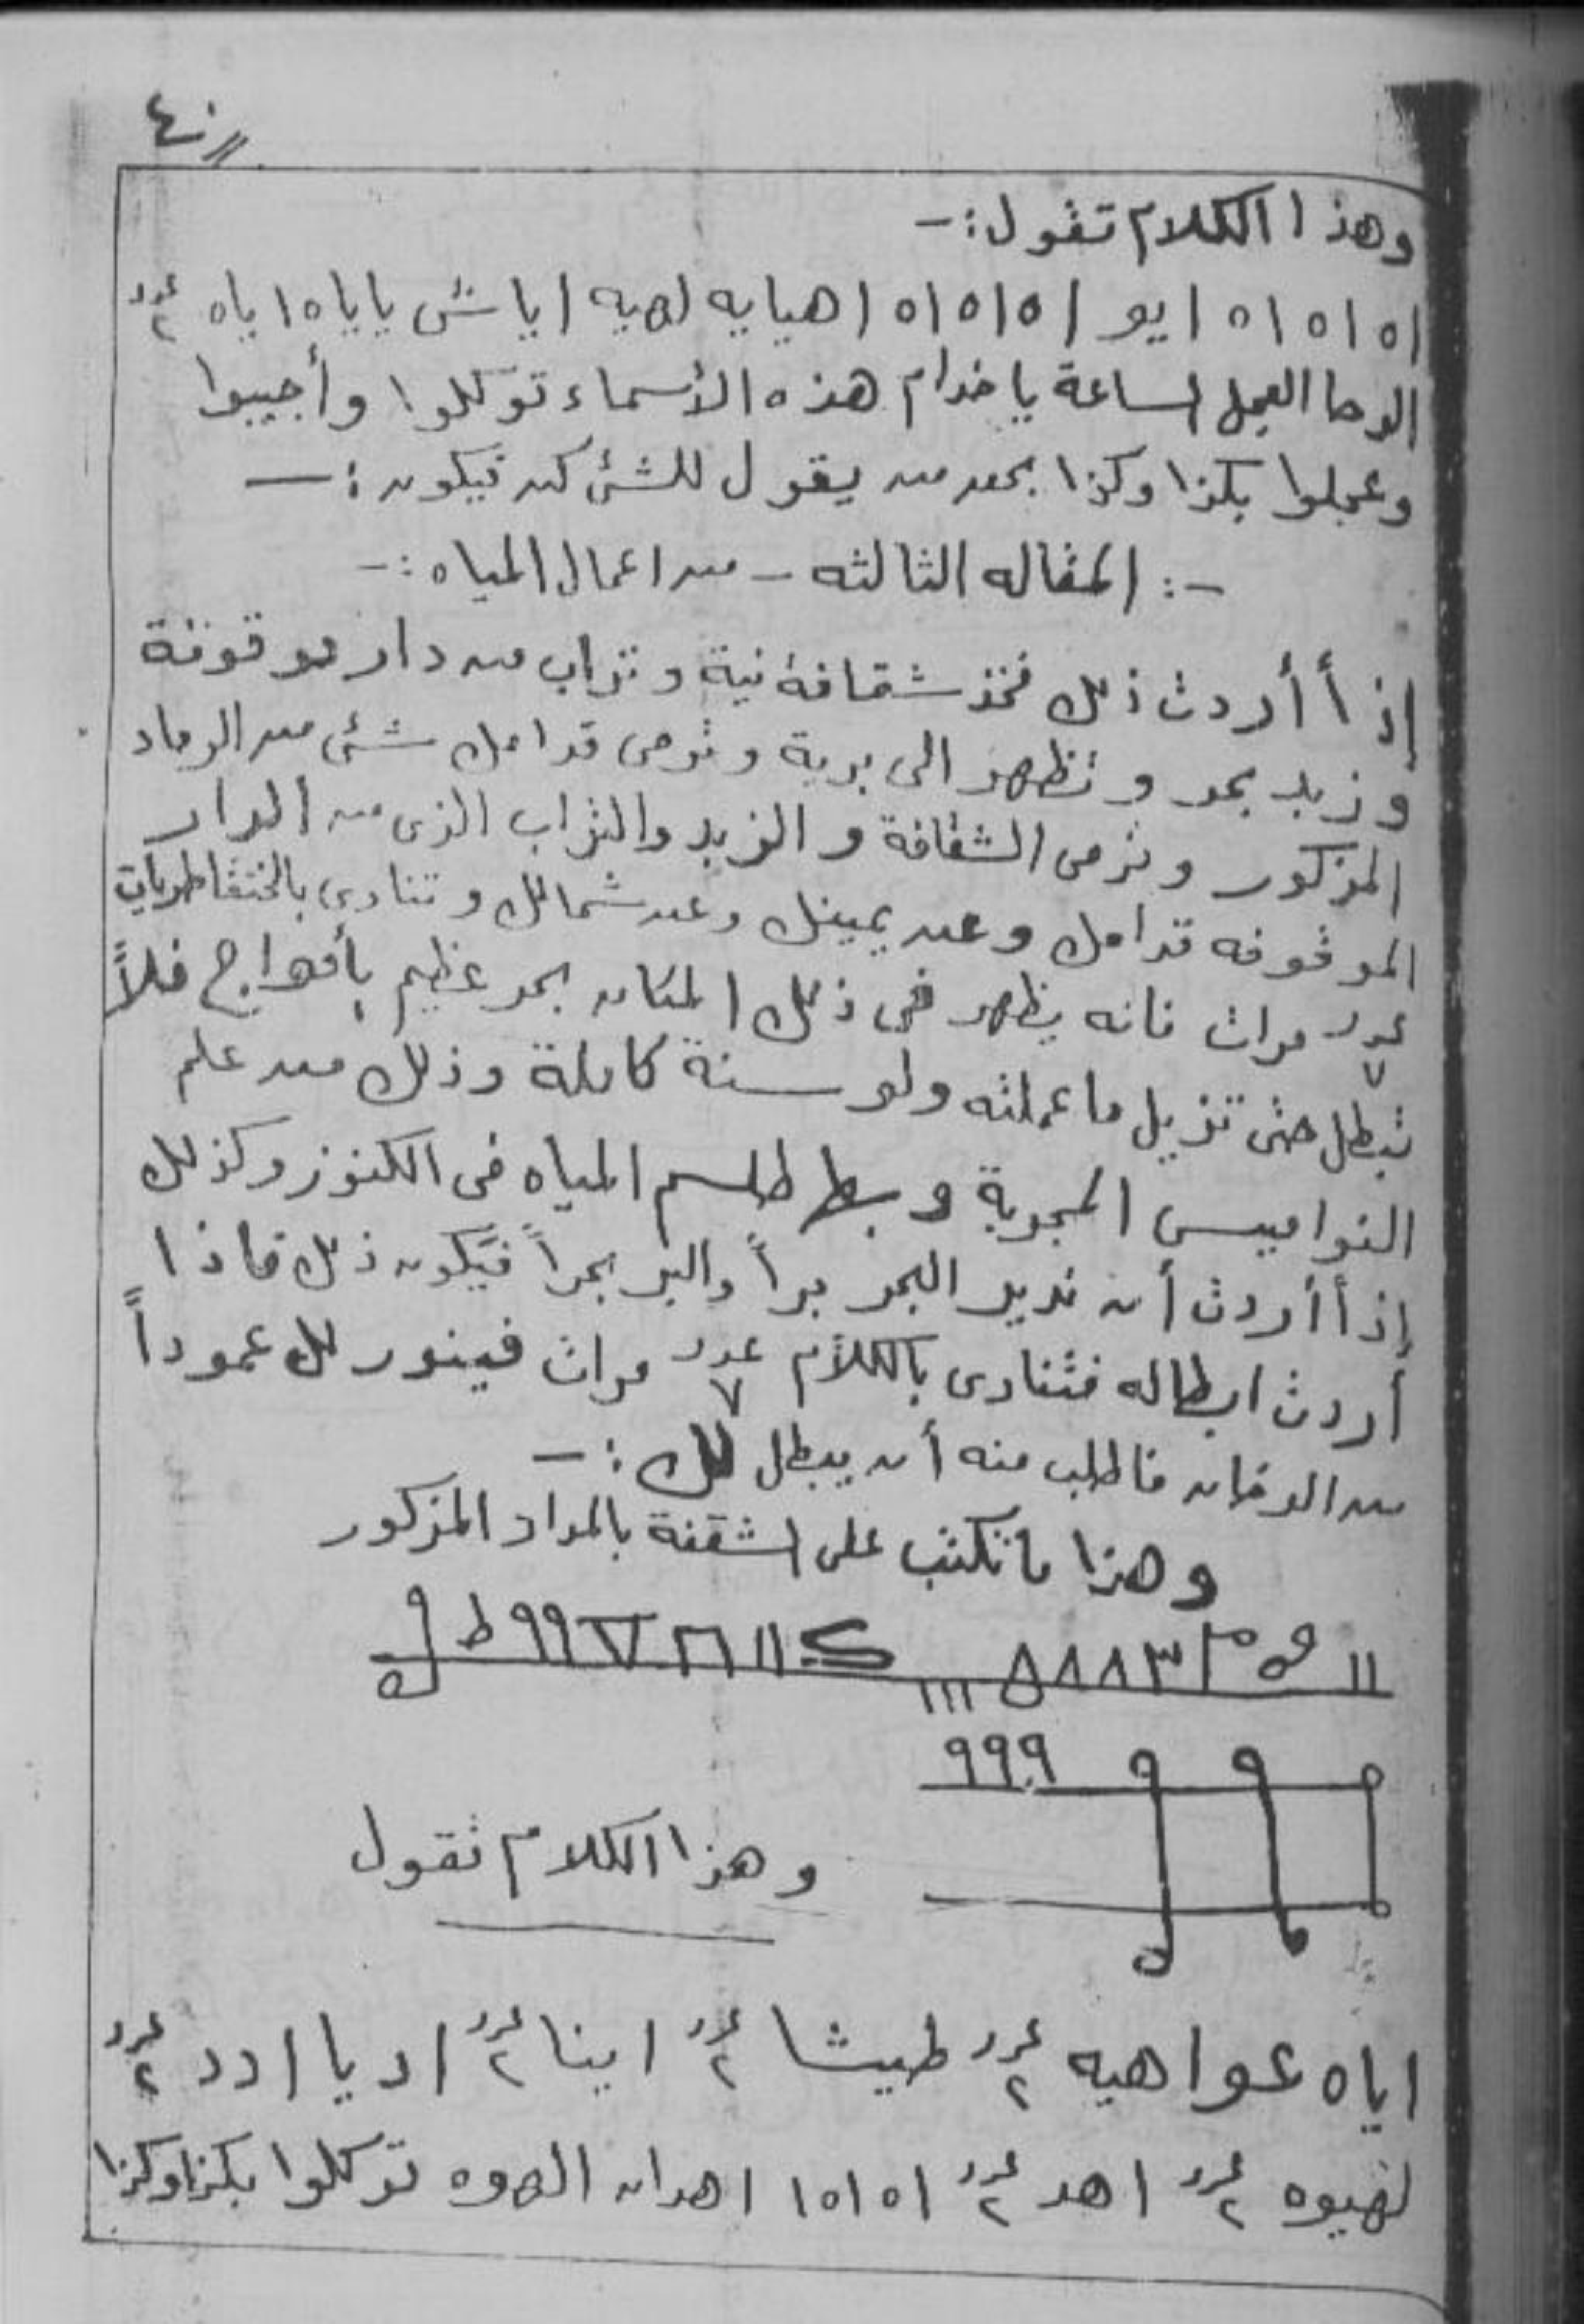 ٤٠
وهذا الكلام تقول :-
اه اه اه اه ايو اه اه اه اهيايه لهيه اياش ياياه اياه عدد ٢
الوحا العجل الساعة يا خدام هذه الأسماء توكلوا وأجيبوا
وعجلوا بكذا وكذا بحق من يقول للشئ كن فيكون :-
-: المقاله الثالثه - من اعمال المياه :-
إذا أردت ذلك فخذ شقافة نية وتراب من دار موقوفة
وزبد بحر وتظهر الى برية وترمى قدامك شئ من الرماد
المذكور وترمى الشقافة والزبد والتراب الذى من الدار
الموقوفه قدامك وعن يمينك وعن شمالك وتنادى
عدد ٧ مرات فانه يظهر فى ذلك المكان بحر عظيم بأمواج فلاً
تبطل حتى تزيل ما عملته ولو سنة كاملة وذلك من علم
النواميس المجربة وبطل طلسم المياه فى الكنوز وكذلك
إذا أردت أن تريد البحر براً والبر بحراً فيكون ذلك فاذا
أردت ابطاله فتنادى بالكلام عدد ٧ مرات فينور لك عموداً
من الدخان فاطلب منه أن يبطل لك :-
وهذا ما تكتب على الشقفة بالمداد المذكور
٩٩٩
وهذا الكلام تقول
اياه عواهيه عدد ٢ طيشا عدد ٢ اينا عدد ٢ اديا ادد عدد ٢
لهيوه عدد ٢ اهد عدد ٢ اه اه ا اهدان الهوه توكلوا بكذا وكذا